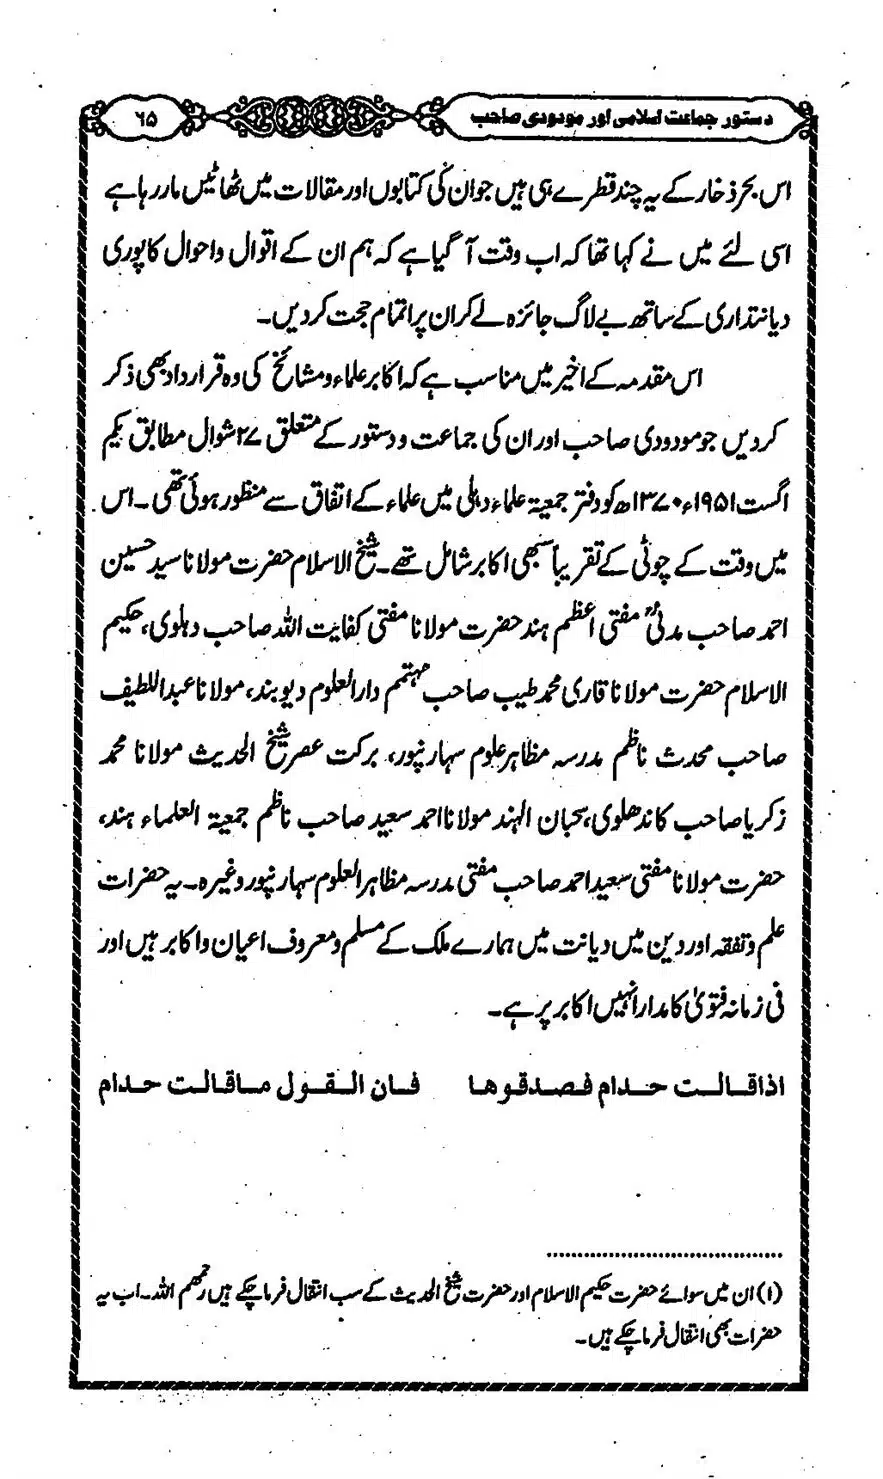 دستور جماعت اسلامی اور مودودی صاحب
۶۵
اس بحر ذخار کے یہ چند قطرے ہی ہیں جو ان کی کتابوں اور مقالات میں ٹھاٹیں مار رہا ہے
اسی لئے میں نے کہا تھا کہ اب وقت آ گیا ہے کہ ہم ان کے اقوال و احوال کا پوری
دیانتداری کے ساتھ بے لاگ جائزہ لے کر ان پر اتمام حجت کر دیں۔
اس مقدمہ کے اخیر میں مناسب ہے کہ اکابر علماء و مشائخ کی وہ قرارداد بھی ذکر
کردیں جو مودودی صاحب اور ان کی جماعت و دستور کے متعلق ۲۷ شوال مطابق یکم
اگست ۱۹۵۱ء ۱۳۷۰ھ کو دفتر جمعیۃ علماء دہلی میں علماء کے اتفاق سے منظور ہوئی تھی۔ اس
میں وقت کے چوٹی کے تقریباً سبھی اکابر شامل تھے۔ شیخ الاسلام حضرت مولانا سید حسین
احمد صاحب مدنیؒ مفتی اعظم ہند حضرت مولانا مفتی کفایت اللہ صاحب دہلوی، حکیم
الاسلام حضرت مولانا قاری محمد طیب صاحب مہتمم دارالعلوم دیوبند، مولانا عبداللطیف
صاحب محدث ناظم مدرسہ مظاہر علوم سہارنپور، برکت عصر شیخ الحدیث مولانا محمد
زکریا صاحب کاندھلوی، سحبان الہند مولانا احمد سعید صاحب ناظم جمعیۃ العلماء ہند،
حضرت مولانا مفتی سعید احمد صاحب مفتی مدرسہ مظاہر العلوم سہارنپور وغیرہ۔ یہ حضرات
علم و تفقہ اور دین میں دیانت میں ہمارے ملک کے مسلم و معروف اعیان و اکابر ہیں اور
فی زمانہ فتویٰ کا مدار انہیں اکابر پر ہے۔
اذا قالت حدام فصدقوها فان القول ماقالت حدام
(۱) ان میں سوائے حضرت حکیم الاسلام اور حضرت شیخ الحدیث کے سب انتقال فرما چکے ہیں رحمہم اللہ۔ اب یہ
حضرات بھی انتقال فرما چکے ہیں۔